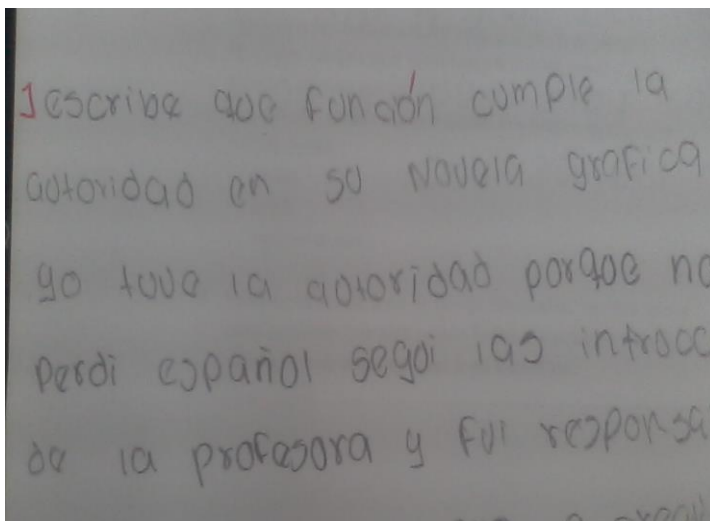 1 escribe que función cumple la
autoridad en su Novela grafica
yo tuve la autoridad porque no
Perdi español segui las introcc
de la profesora y fui responsa